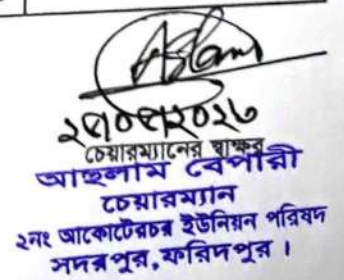 Aslam
চেয়ারম্যানের স্বাক্ষর
আছলাম বেপারী
চেয়ারম্যান
২নং আকোটেরচর ইউনিয়ন পরিষদ
সদরপুর, ফরিদপুর ।